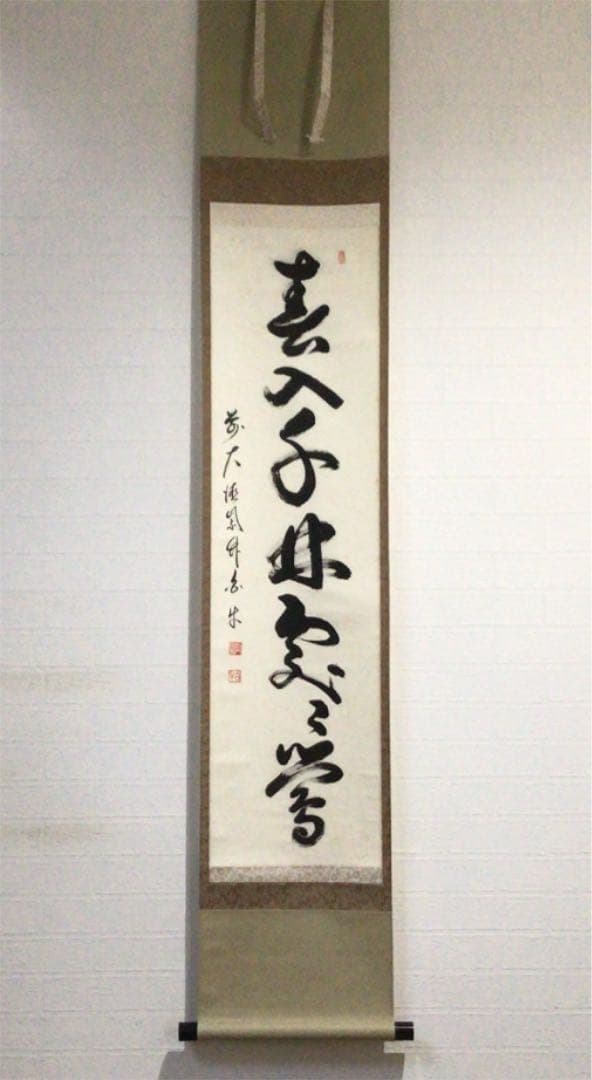 春入千林處〻鶯
前大徳紫野